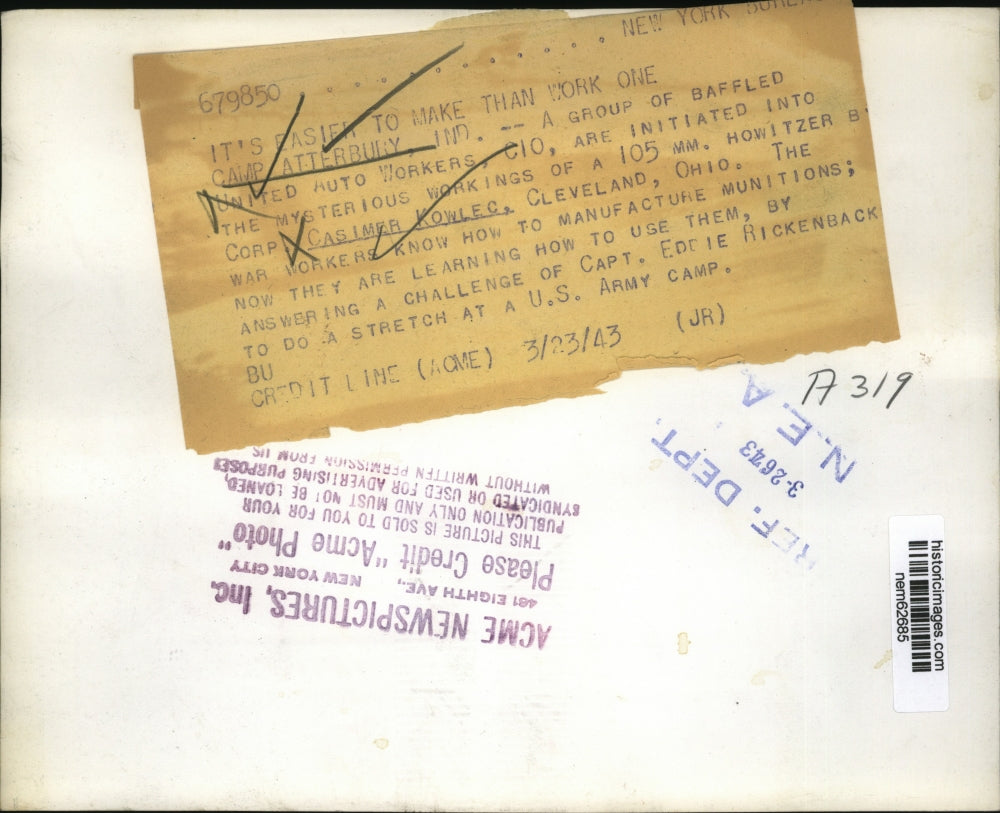 NEW YORK BUREAU
679850
IT'S EASIER TO MAKE THAN WORK ONE
CAMP ATTERBURY, IND. -- A GROUP OF BAFFLED
UNITED AUTO WORKERS, CIO, ARE INITIATED INTO
THE MYSTERIOUS WORKINGS OF A 105 MM. HOWITZER B
CORP. CASIMER KOWLEC, CLEVELAND, OHIO. THE
WAR WORKERS KNOW HOW TO MANUFACTURE MUNITIONS;
NOW THEY ARE LEARNING HOW TO USE THEM, BY
ANSWERING A CHALLENGE OF CAPT. EDDIE RICKENBACK
TO DO A STRETCH AT A U.S. ARMY CAMP.
BU
CREDIT LINE (ACME) 3/23/43 (JR)
A 319
REF. DEPT.
3-26-43
N. E. A.
ACME NEWSPICTURES, Inc.
461 EIGHTH AVE., NEW YORK CITY
Please Credit "Acme Photo"
THIS PICTURE IS SOLD TO YOU FOR YOUR
PUBLICATION ONLY AND MUST NOT BE LOANED,
SYNDICATED OR USED FOR ADVERTISING PURPOSES
WITHOUT WRITTEN PERMISSION FROM US
historicimages.com
nem62685